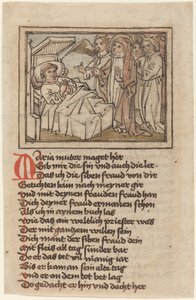 Maria muter maget her
Ich mir die sin und auch die ler
Das ich die siben fraud von dir
Getichten kün nach meyner gir
und mit deynen frauden fraud han
Dich deyner fraud ermanen schon
Als ich in eynem buch las
wie das eyn weltlich priester was
Der mit ganczem vollez sein
Dich mant der siben fraud dein
mit fleis all tag sunder bar
Do er das tet vil manig iar
Bis er kam an sein alte tag
und er an dem bet lag
Do gedacht er hin und dacht her